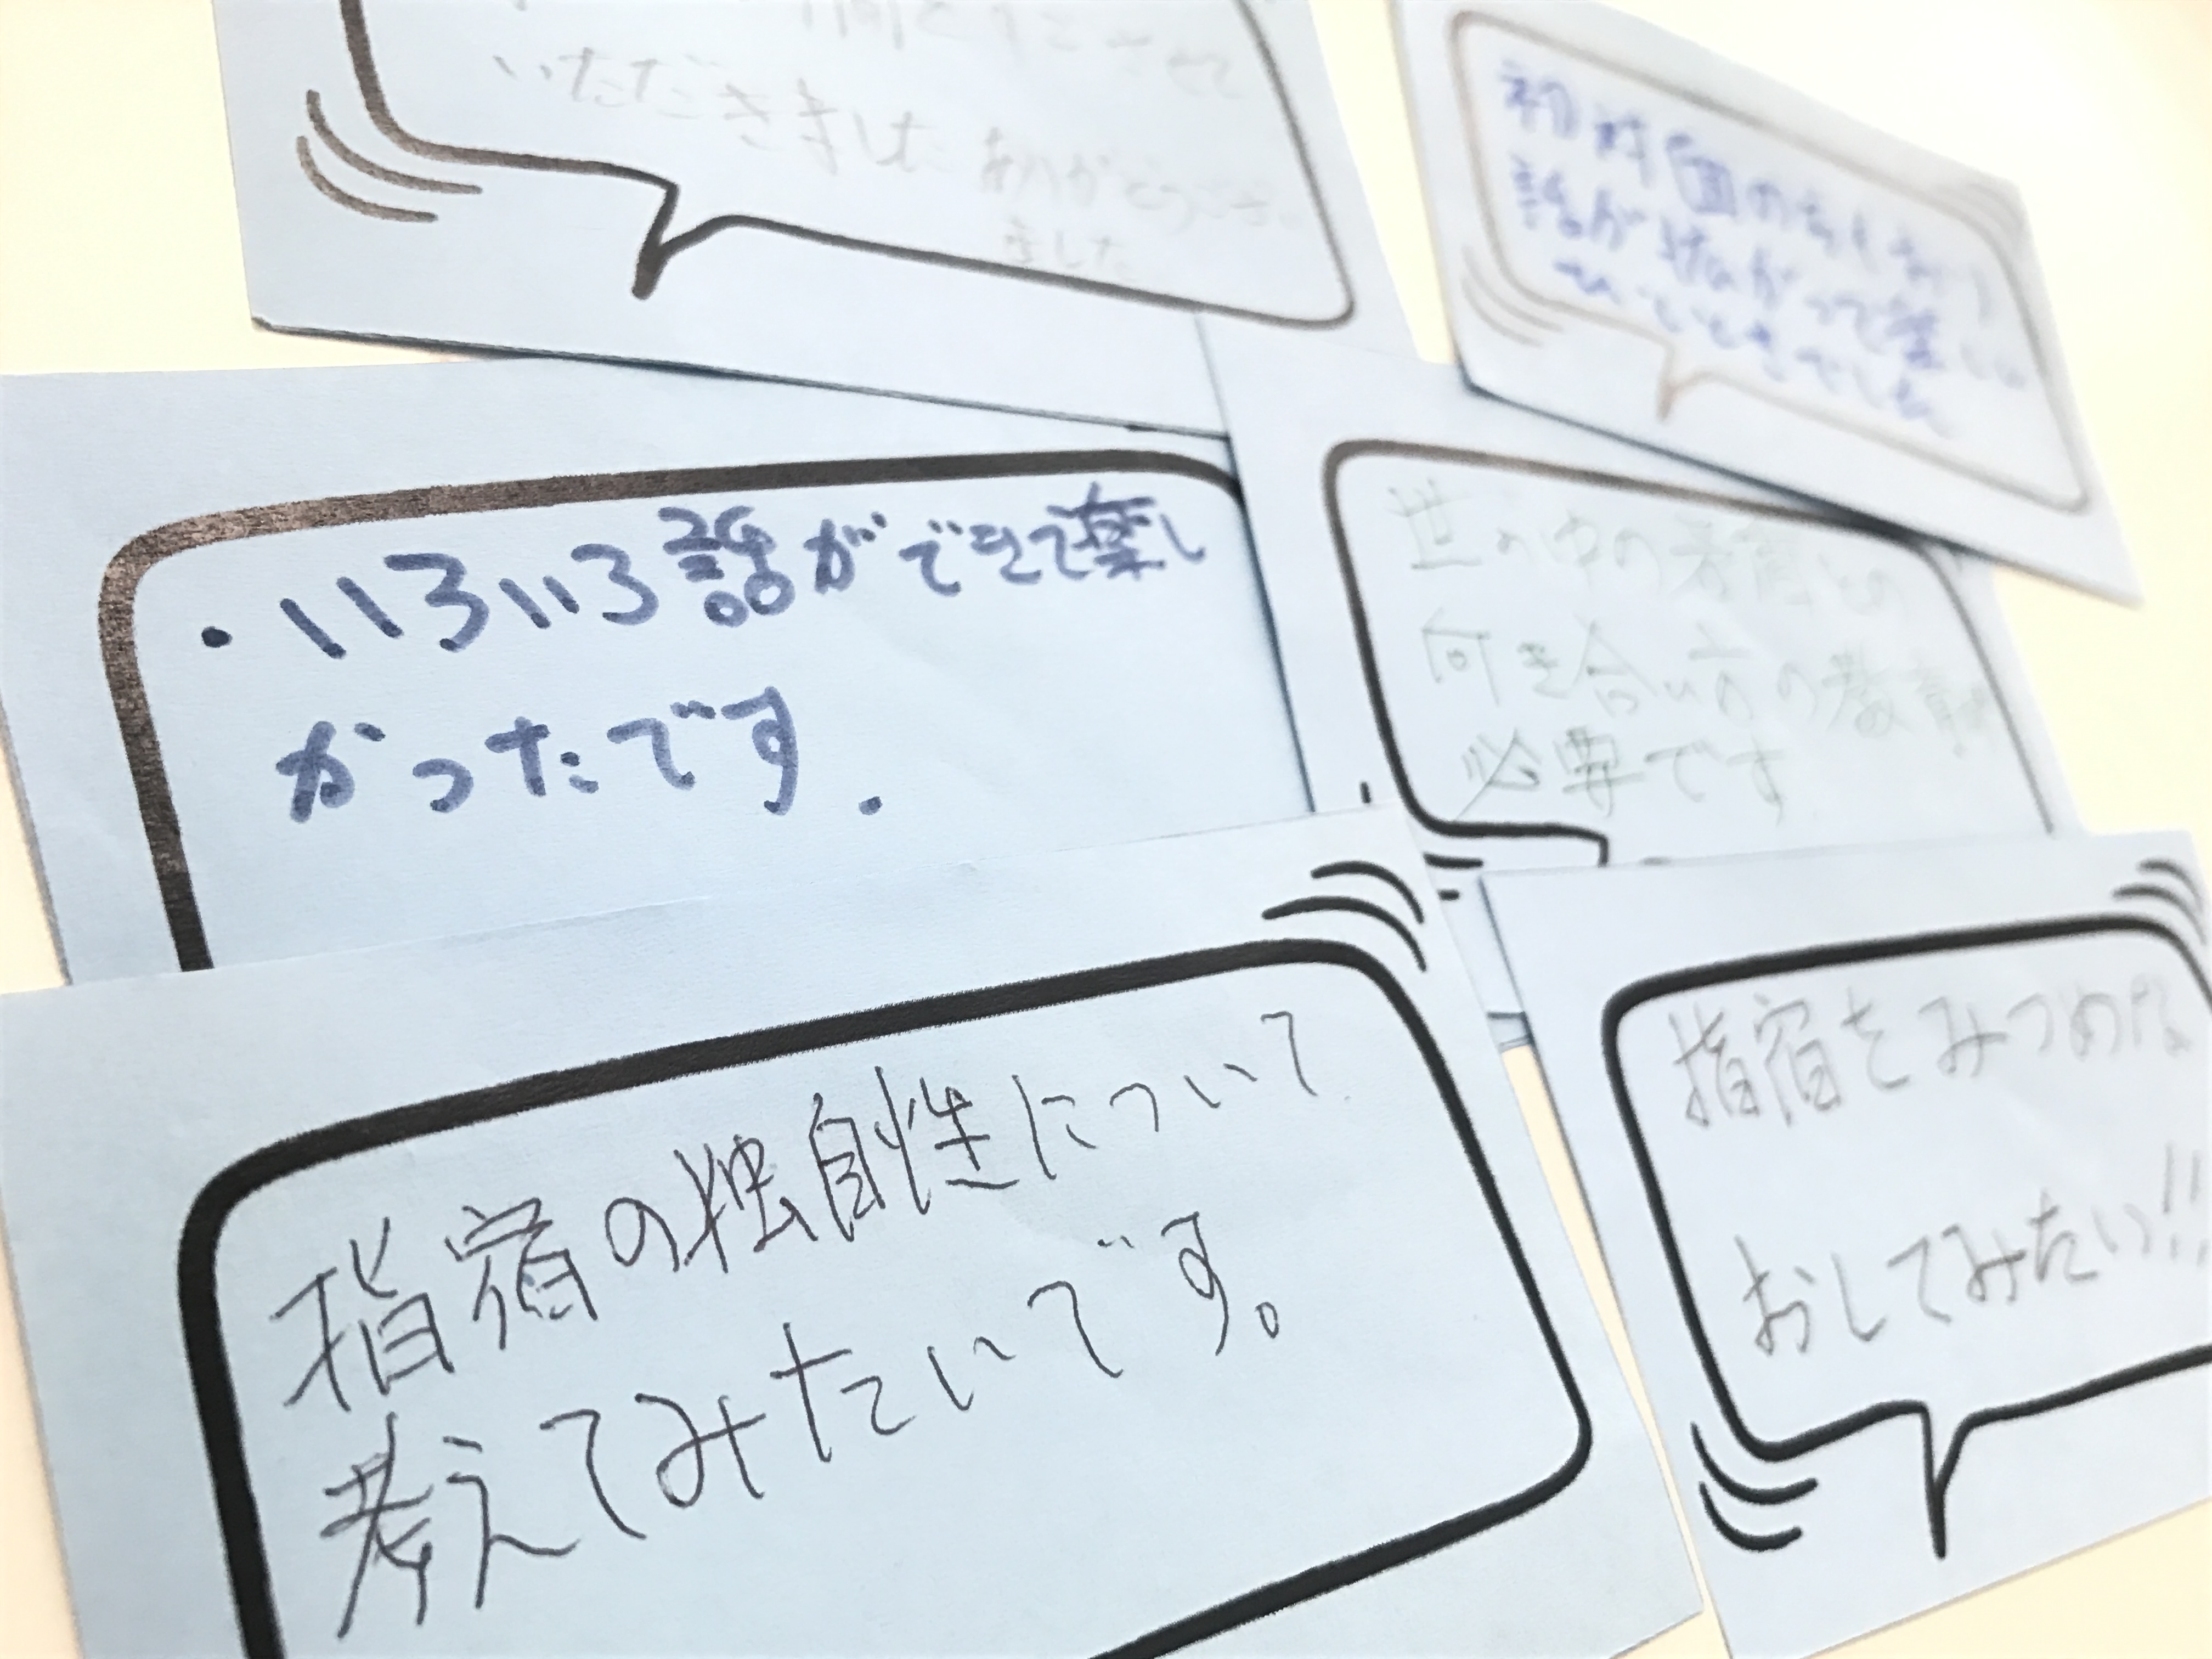 いただきました ありがとうござい
ました
初対面の方とも
話が拡がって楽しい
ひとときでした
・いろいろ話ができて楽し
かったです.
世の中の
向き合い方の教育が
必要です
指宿の独自性について
考えてみたいです。
指宿をみつめな
おしてみたい!!